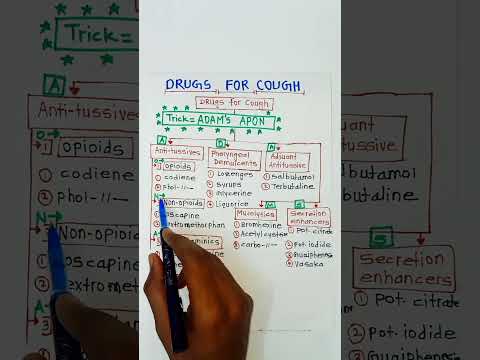 DRUGS FOR COUGH
Drugs for Cough
Trick = ADAM'S APON
A
Antitussives
O→
1 Opioids
1 codiene
2 Phol-11-
N→
Non-opioids
oscapine
extromethorphan
D
Pharyngeal
Demulcents
1 Lozenges
2 Syrups
3 Glycerine
4 Liquorice
A
Adjuvant
Antitussive
1 Salbutamol
2 Terbutaline
M
Mucolytics
1 Bromhexine
2 Acetylcysteine
3 carbo-11-
S
Secretion
enhancers
1 Pot. citrate
2 Pot. iodide
3 Guaiphenesin
4 Vasaka
Trick =
A
Anti-tussives
O→
1 Opioids
1 codiene
2 Phol-11-
N→
Non-opioids
oscapine
A→
3
S
Secretion
enhancers
1 Pot. citrate
2 Pot. iodide